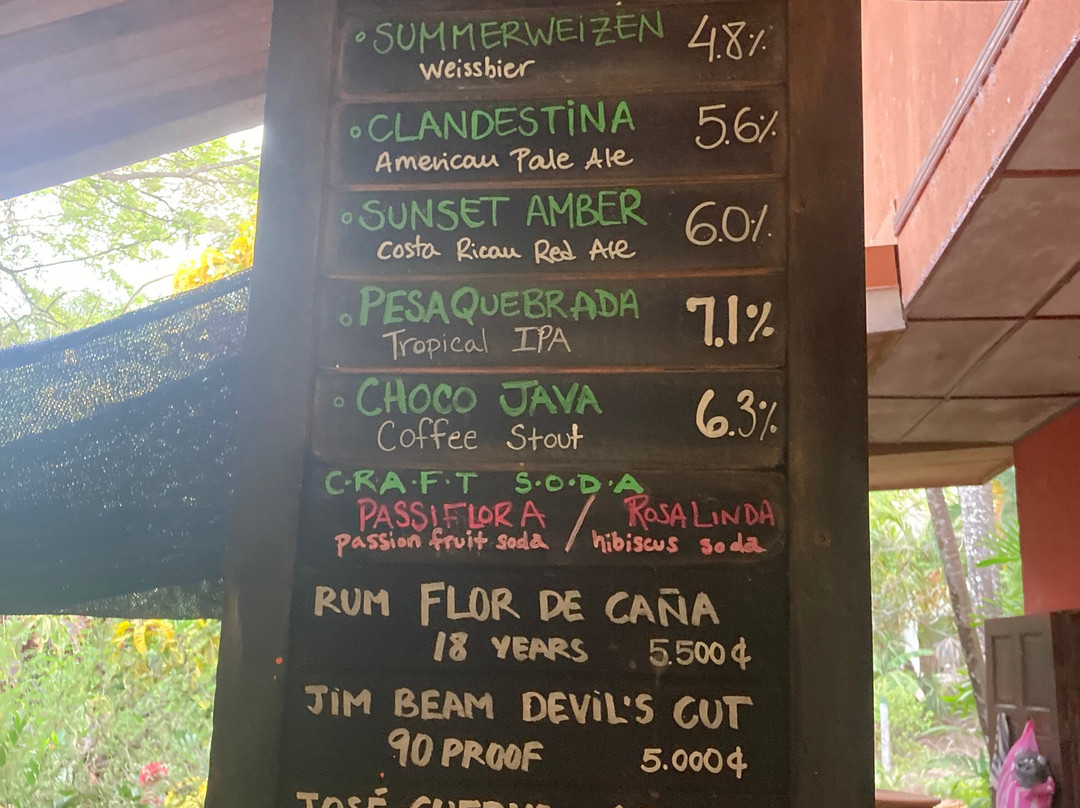 SUMMERWEIZEN 4.8%
Weissbier
CLANDESTINA 5.6%
American Pale Ale
SUNSET AMBER 6.0%
Costa Rican Red Ale
PESAQUEBRADA 7.1%
Tropical IPA
CHOCO JAVA 6.3%
Coffee Stout
C·R·A·F·T S·O·D·A
PASSIFLORA / ROSALINDA
passion fruit soda / hibiscus soda
RUM FLOR DE CAÑA
18 YEARS 5.500₡
JIM BEAM DEVIL'S CUT
90 PROOF 5.000₡
JOSÉ